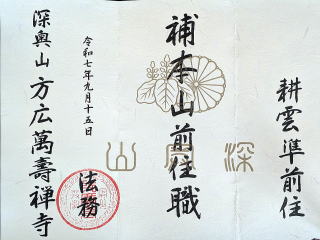 耕雲準前住
補本山前住職
令和七年九月十五日
法務
深奥山方広萬壽禅寺
深奥山